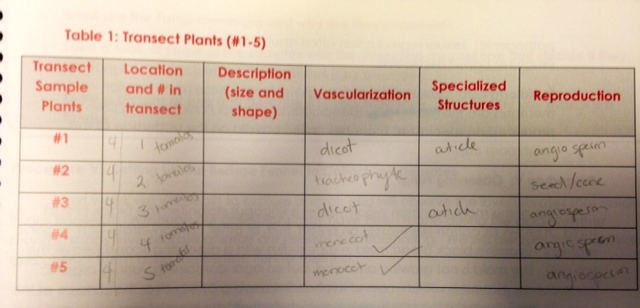 Table 1: Transect Plants (#1-5)
Transect Sample Plants Location and # in transect Description (size and shape) Vascularization Specialized Structures Reproduction
#1 4 1 tomatos dicot cuticle angiosperm
#2 4 2 tomatos tracheophyte seed/cone
#3 4 3 tomatos dicot cuticle angiosperm
#4 4 4 tomatos monocot ✓ angiosperm
#5 4 5 tomatos monocot ✓ angiosperm